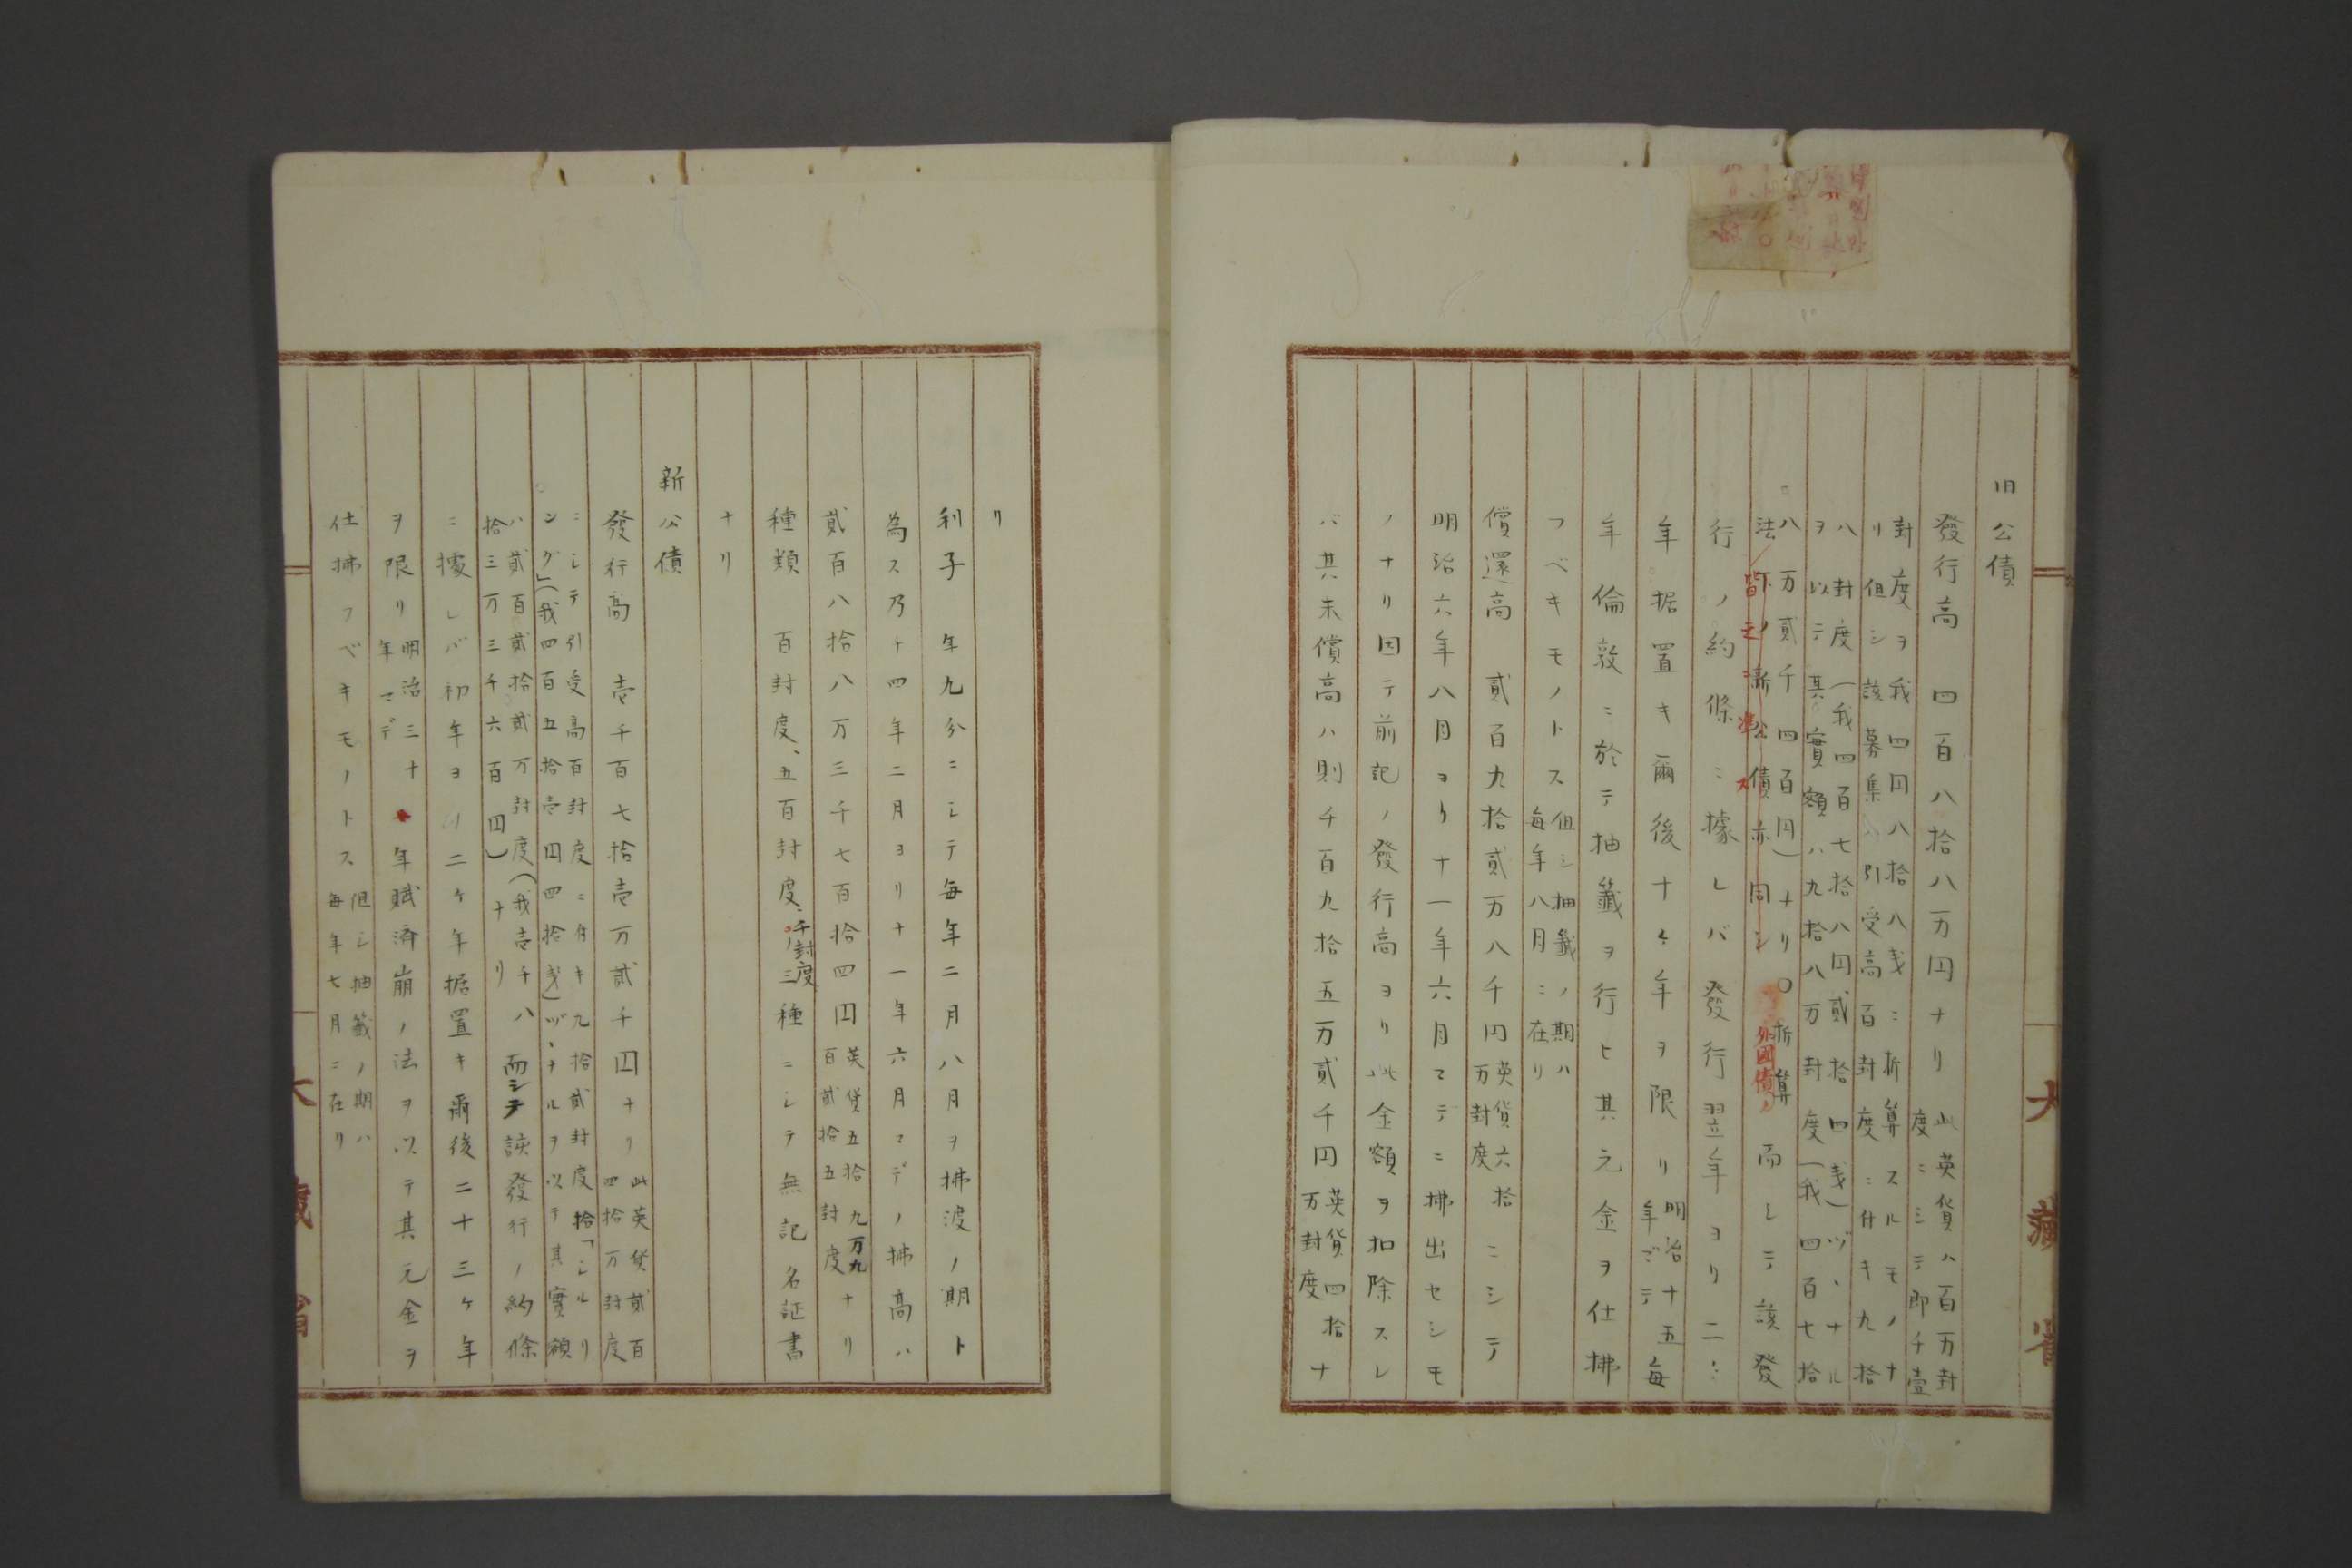 旧公債
發行高 四百八拾八万円ナリ 此英貨ハ百万封
度ニシテ即千壹
封度ヲ我四円八拾八戔ニ折算スルモノナ
リ但シ該募集ハ引受高百封度ニ付キ九拾
八封度(我四百七拾八円貳拾四戔)ヅヽナル
ヲ以テ其實額ハ九拾八万封度(我四百七拾
八万貳千四百円)ナリ○折算
法ノ新公債亦同シ
外國債ノ
皆之ニ準ス
而シテ該發
行ノ約條ニ據レバ發行翌年ヨリ二ヶ
年据置キ爾後十ヶ年ヲ限リ 明治十五
年マデ 毎
年倫敦ニ於テ抽籤ヲ行ヒ其元金ヲ仕拂
フベキモノトス 但シ抽籤ノ期ハ
毎年八月ニ在リ
償還高 貳百九拾貳万八千円 英貨六拾
万封度 ニシテ
明治六年八月ヨリ十一年六月マテニ拂出セシモ
ノナリ因テ前記ノ發行高ヨリ此金額ヲ扣除スレ
バ其未償高ハ則千百九拾五万貳千円 英貨四拾
万封度 ナ
大藏省
リ
利子 年九分ニシテ毎年二月八月ヲ拂渡ノ期ト
為ス乃十四年二月ヨリ十一年六月マデノ拂高ハ
貳百八拾八万三千七百拾四円 英貨五拾九万九
百貳拾五封度 ナリ
種類 百封度、五百封度、千封度ノ三種ニシテ無記名証書
ナリ
新公債
發行高 壱千百七拾壱万貳千円ナリ 此英貨貳百
四拾万封度
ニシテ引受高百封度ニ付キ九拾貳封度拾「シルリ
ング」(我四百五拾壱円四拾戔)ヅヽナルヲ以テ其實額
ハ貳百貳拾貳万封度(我壱千八
拾三万三千六百円)ナリ 而シテ該發行ノ約條
ニ據レバ初年ヨリ二ケ年据置キ爾後二十三ケ年
ヲ限リ 明治三十
年マデ 年賦済崩ノ法ヲ以テ其元金ヲ
仕拂フベキモノトス 但シ抽籤ノ期ハ
毎年七月ニ在リ
大藏省